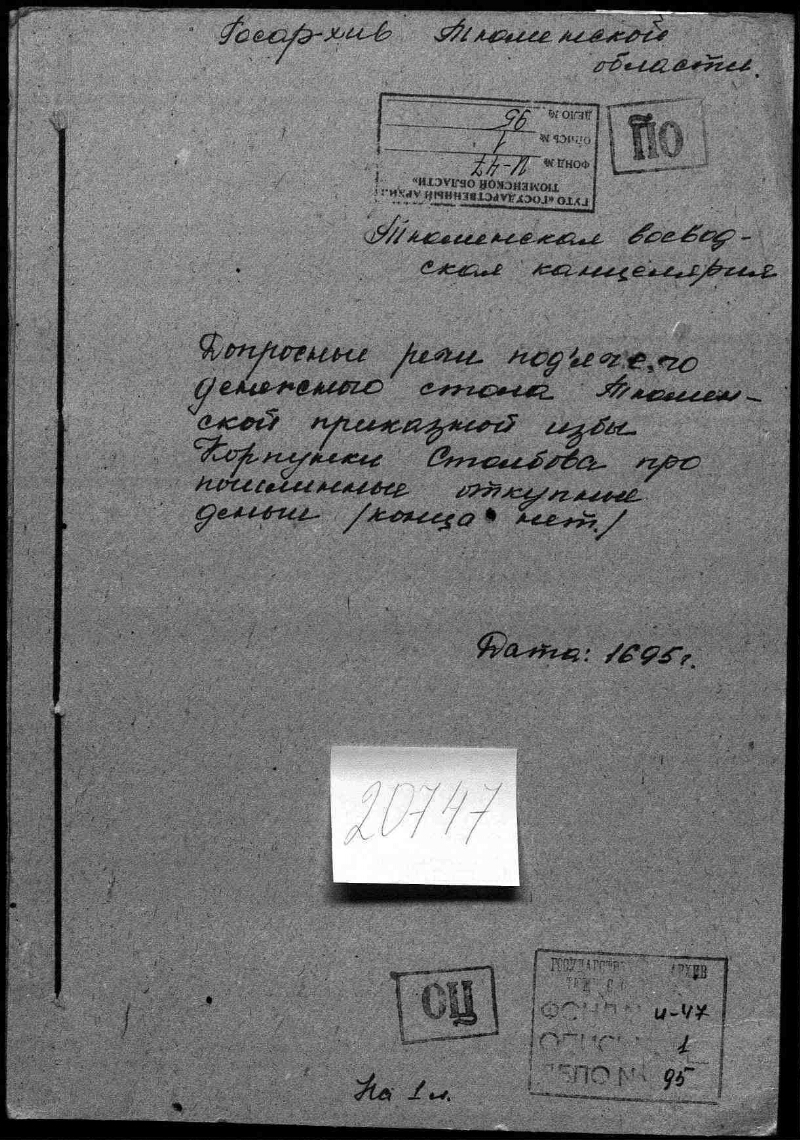 Госархив Тюменской
области.
ОЦ
ДЕЛО № 95
ОПИСЬ № 1
ФОНД № И-47
ТЮМЕНСКОЙ ОБЛАСТИ»
ГУТО «ГОСУДАРСТВЕННЫЙ АРХИВ
Тюменская воевод-
ская канцелярия
Допросные речи подъячего
денежного стола Тюмен-
ской приказной избы
Корпунки Столбова про
пошлинные откупные
деньги /конца нет./
Дата: 1695г.
20747
ОЦ
АРХИВ
ФОНД № и-47
ОПИСЬ 1
ДЕЛО № 95
На 1 л.